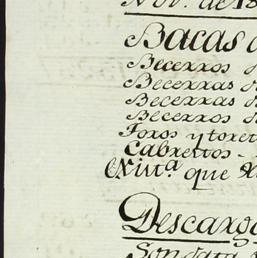 Nov. de 18
Bacas d
Becerros d
Becerras d
Becerras d
Becerros d
Toros y toret
Cabrestos -
Exist.ª que
Descarg
Son data